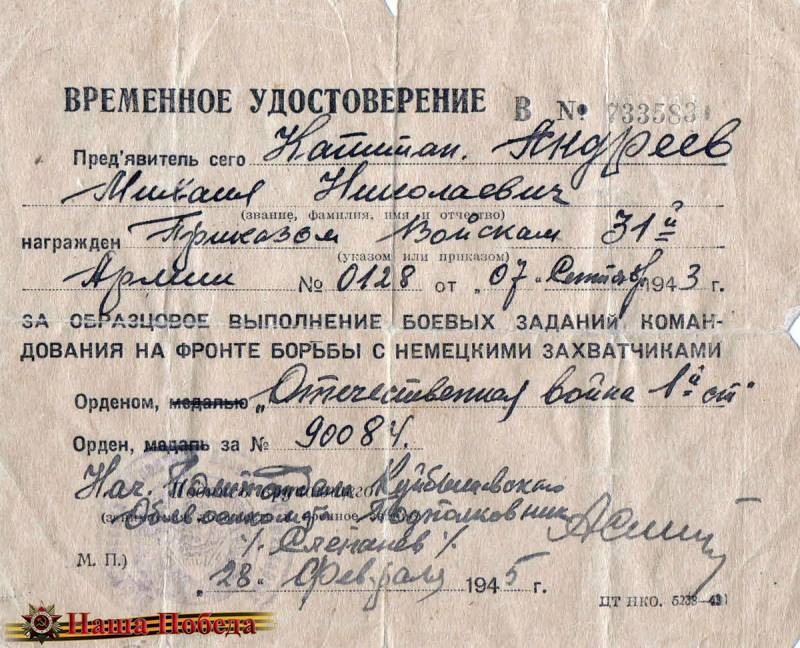 ВРЕМЕННОЕ УДОСТОВЕРЕНИЕ В № 733583
Пред'явитель сего Капитан. Андреев
Михаил Николаевич
(звание, фамилия, имя и отчество)
награжден Приказом Войскам 31й
(указом или приказом)
Армии № 0128 от „07" Сентябр 1943 г.
ЗА ОБРАЗЦОВОЕ ВЫПОЛНЕНИЕ БОЕВЫХ ЗАДАНИЙ КОМАН-
ДОВАНИЯ НА ФРОНТЕ БОРЬБЫ С НЕМЕЦКИМИ ЗАХВАТЧИКАМИ
Орденом, медалью „Отечественная война 1й ст"
Орден, медаль за № 90084.
Нач. Куйбышевского
Облвоенкомат Подполковник
/. Степанев /.
М. П.)
„28" Февраля 1945 г.
ЦТ НКО. 5238—43
Наша Победа